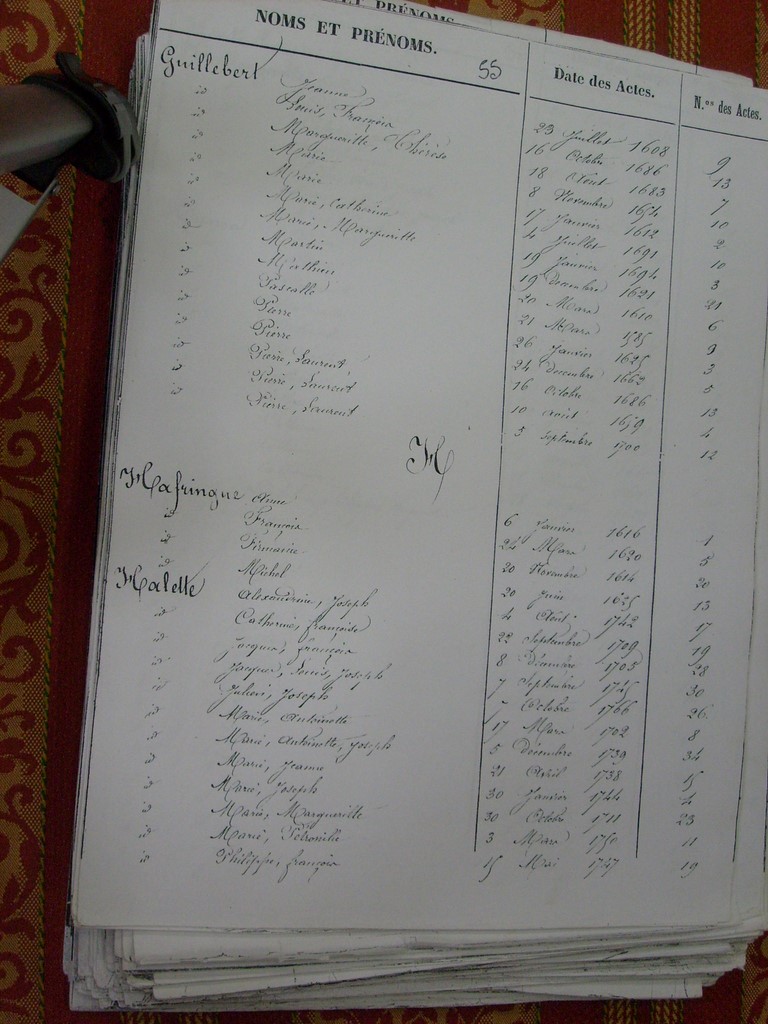 ET PRÉNOMS
NOMS ET PRÉNOMS. 55 Date des Actes. N.os des Actes.
Guillebert Jeanne 23 Juillet 1608 9
id Louis, François 16 Octobre 1686 13
id Marguerite, Thérèse 18 Aout 1683 7
id Marie 8 Novembre 1654 10
id Marie 17 Janvier 1612 2
id Marie, Catherine 4 Juillet 1691 10
id Marie, Marguerite 19 Janvier 1694 3
id Martin 19 Decembre 1621 21
id Mathieu 20 Mars 1610 6
id Pascalle 21 Mars 1585 9
id Pierre 26 Janvier 1625 3
id Pierre 24 Decembre 1662 5
id Pierre, Laurent 16 Octobre 1686 13
id Pierre, Laurent 10 Aout 1659 4
id Pierre, Laurent 5 Septembre 1700 12
M
Mafringue Anne 6 Janvier 1616 1
id François 24 Mars 1620 5
id Firmaine 20 Novembre 1614 20
id Michel 20 Juin 1625 13
Malette Alexandrine, Joseph 4 Aout 1742 17
id Catherine, françoise 22 Septembre 1709 19
id Jacques, françois 8 Décembre 1703 28
id Jacques, Louis, Joseph 7 Septembre 1745 30
id Julien, Joseph 7 Octobre 1766 26
id Marie, Antoinette 17 Mars 1702 8
id Marie, Antoinette, Joseph 5 Décembre 1739 34
id Marie, Jeanne 21 Avril 1738 15
id Marie, Joseph 30 Janvier 1744 4
id Marie, Marguerite 30 Octobre 1711 23
id Marie, Pétronille 3 Mars 1750 11
id Philippe, françois 15 Mai 1747 19